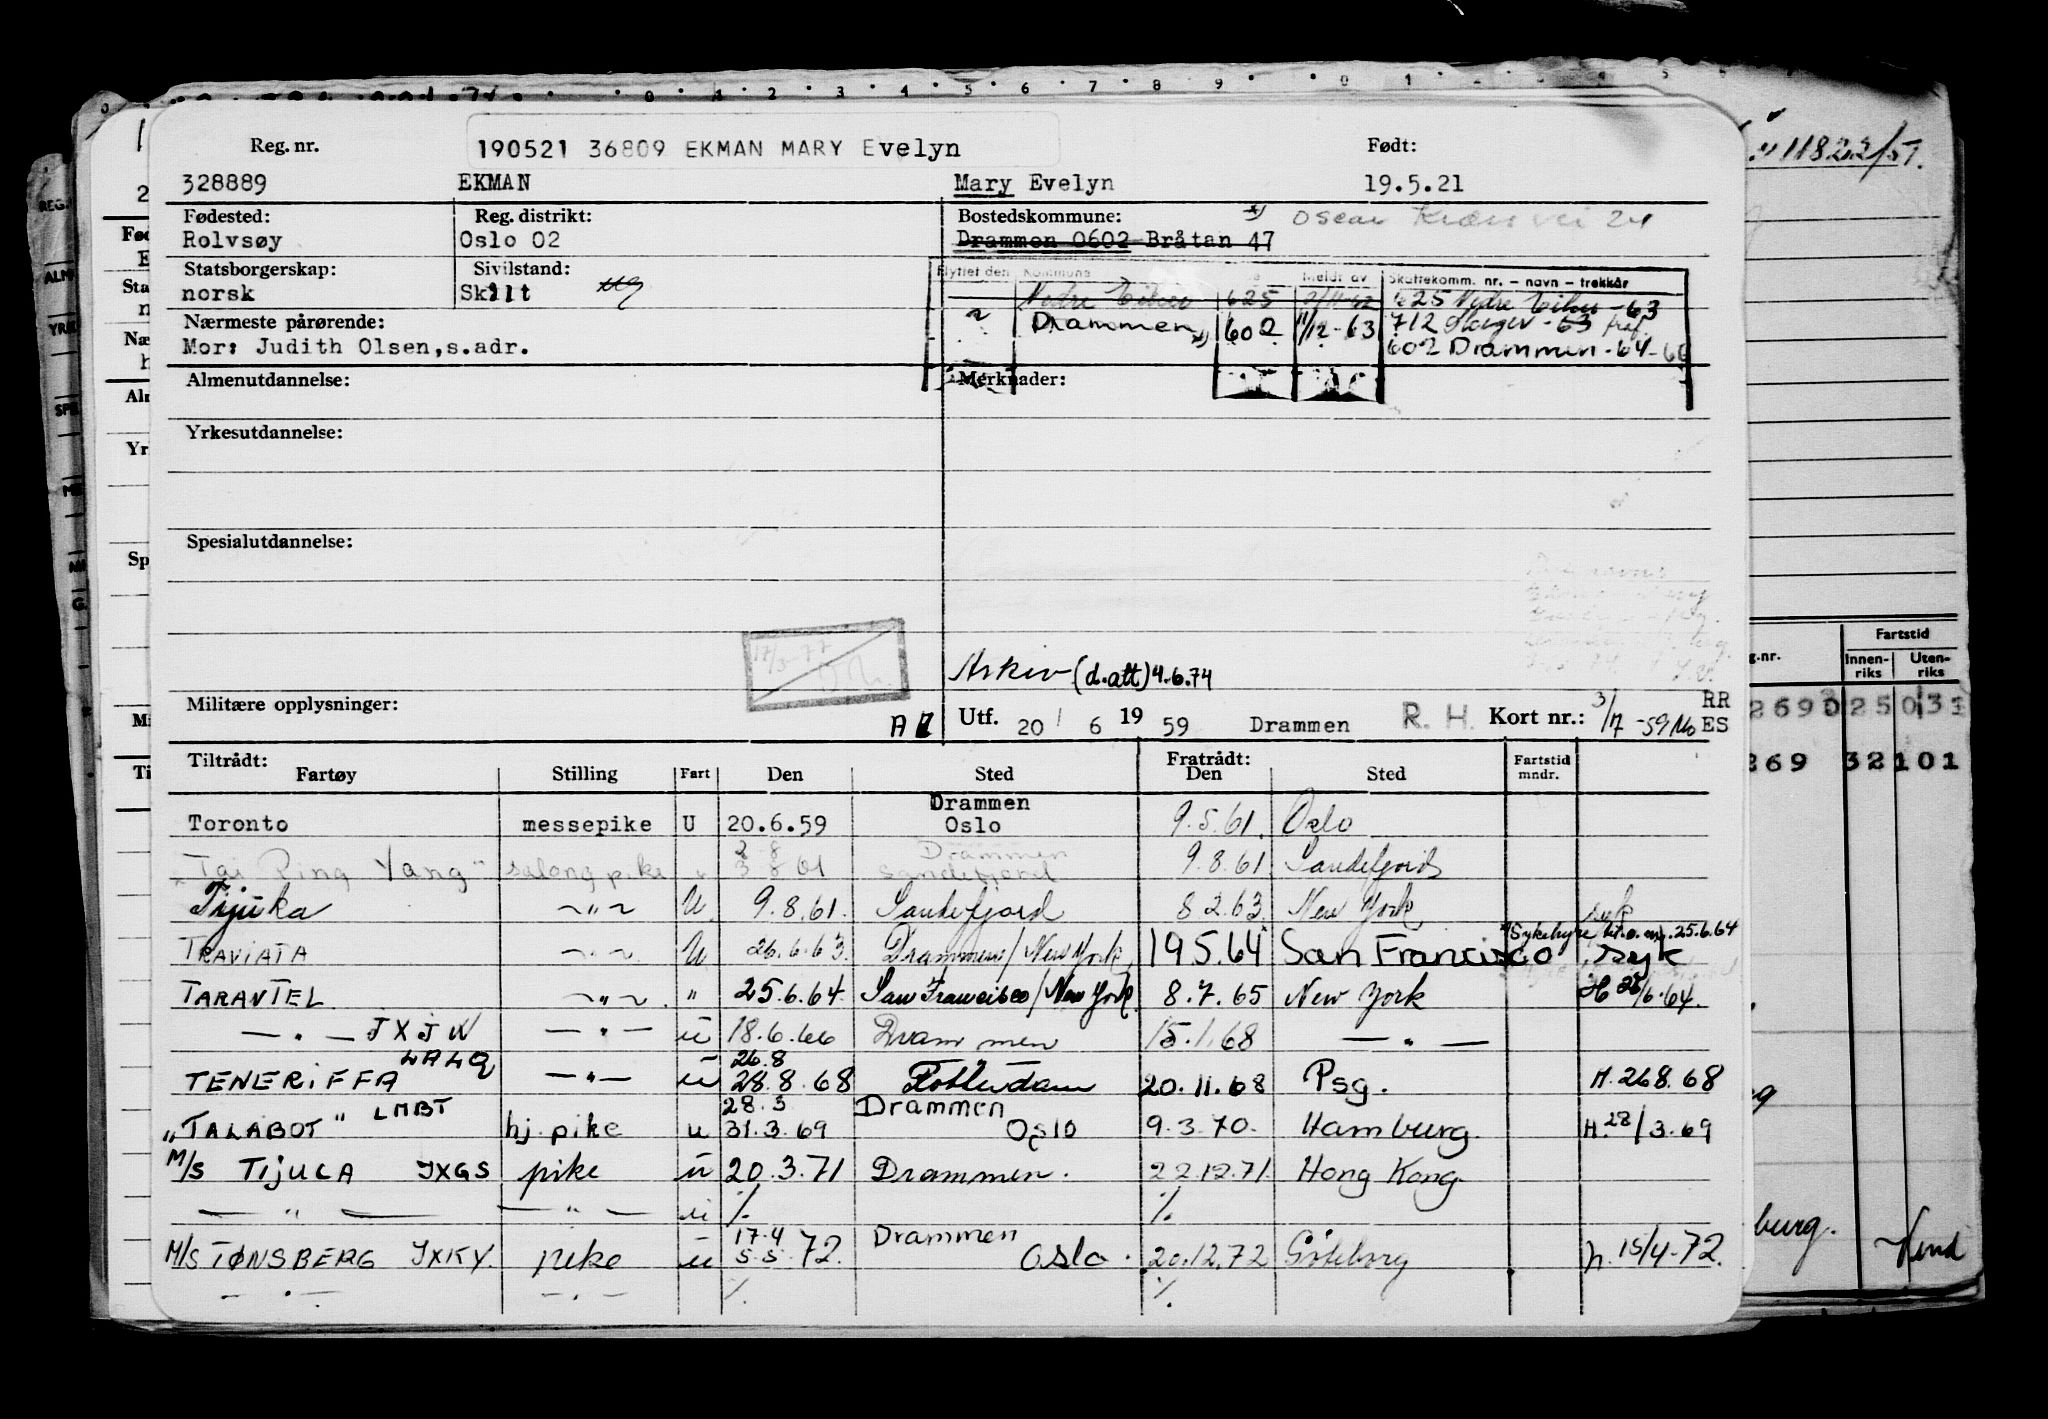 190521 36809 EKMAN MARY Evelyn
Reg. nr. Født:
328889 EKMAN Mary Evelyn 19.5.21
Fødested: Reg. distrikt: Bostedskommune: x) Oscar Kiærs vei 24
Rolvsøy Oslo 02 Drammen 0602 Bråtan 47
Statsborgerskap: Sivilstand: Flyttet den Kommune Meldt av Skattekomm. nr. – navn – trekkår
norsk Skilt ug Nedre Eiker 625 625 Nedre Eiker -63
Nærmeste pårørende: Drammen x) 602 11/12-63 712 -63
Mor: Judith Olsen, s.adr. 602 Drammen -64-66
Almenutdannelse: Merknader:
Yrkesutdannelse:
Spesialutdannelse:
17/3-77
Arkiv (d.att) 4.6.74
Militære opplysninger: Utf. 20 / 6 19 59 Drammen R. H. Kort nr.: 3/7-59 RR ES
Tiltrådt: Fratrådt:
Fartøy Stilling Fart Den Sted Den Sted Fartstid mndr.
Drammen
Toronto messepike U 20.6.59 Oslo 9.5.61. Oslo
2 8 Drammen
"Tai Ping Yang" salongpike 3 8 61 Sandefjord 9.8.61 Sandefjord
Tijuka -"- U 9.8.61. Sandefjord 8 2.63. New York syk
x) Sykehyre 25.6.64
TRAVIATA -"- U 26.6.63. Drammen/New York, 19.5.64 San Francisco syk
TARANTEL -"- " 25.6.64. San Francisco/New York. 8.7.65 New York H 25/6.64.
— " — JXJW — " — u 18.6.66 Drammen 15.1.68 — " —
LALQ 26.8
TENERIFFA — " — u 28.8.68 Rotterdam 20.11.68 Psg. H.268.68
LMBT 28.3 Drammen
"TALABOT" hj. pike u 31.3.69 Oslo 9.3.70. Hamburg. H.28/3.69
M/S TIJUCA JXGS pike u 20.3.71 Drammen. 22.12.71. Hong Kong.
— " — — " — u ./. ./.
17.4 Drammen
M/S TØNSBERG JXKY. pike u 5.5.72. Oslo. 20.12.72 Göteborg h. 15/4-72.
— " — — " — ./. ./.
11822/51.
Fartstid
Innen-riks Uten-riks
2690 25 031
269 32 101
burg.